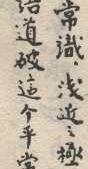 常識，淺近之極
道破這个平常